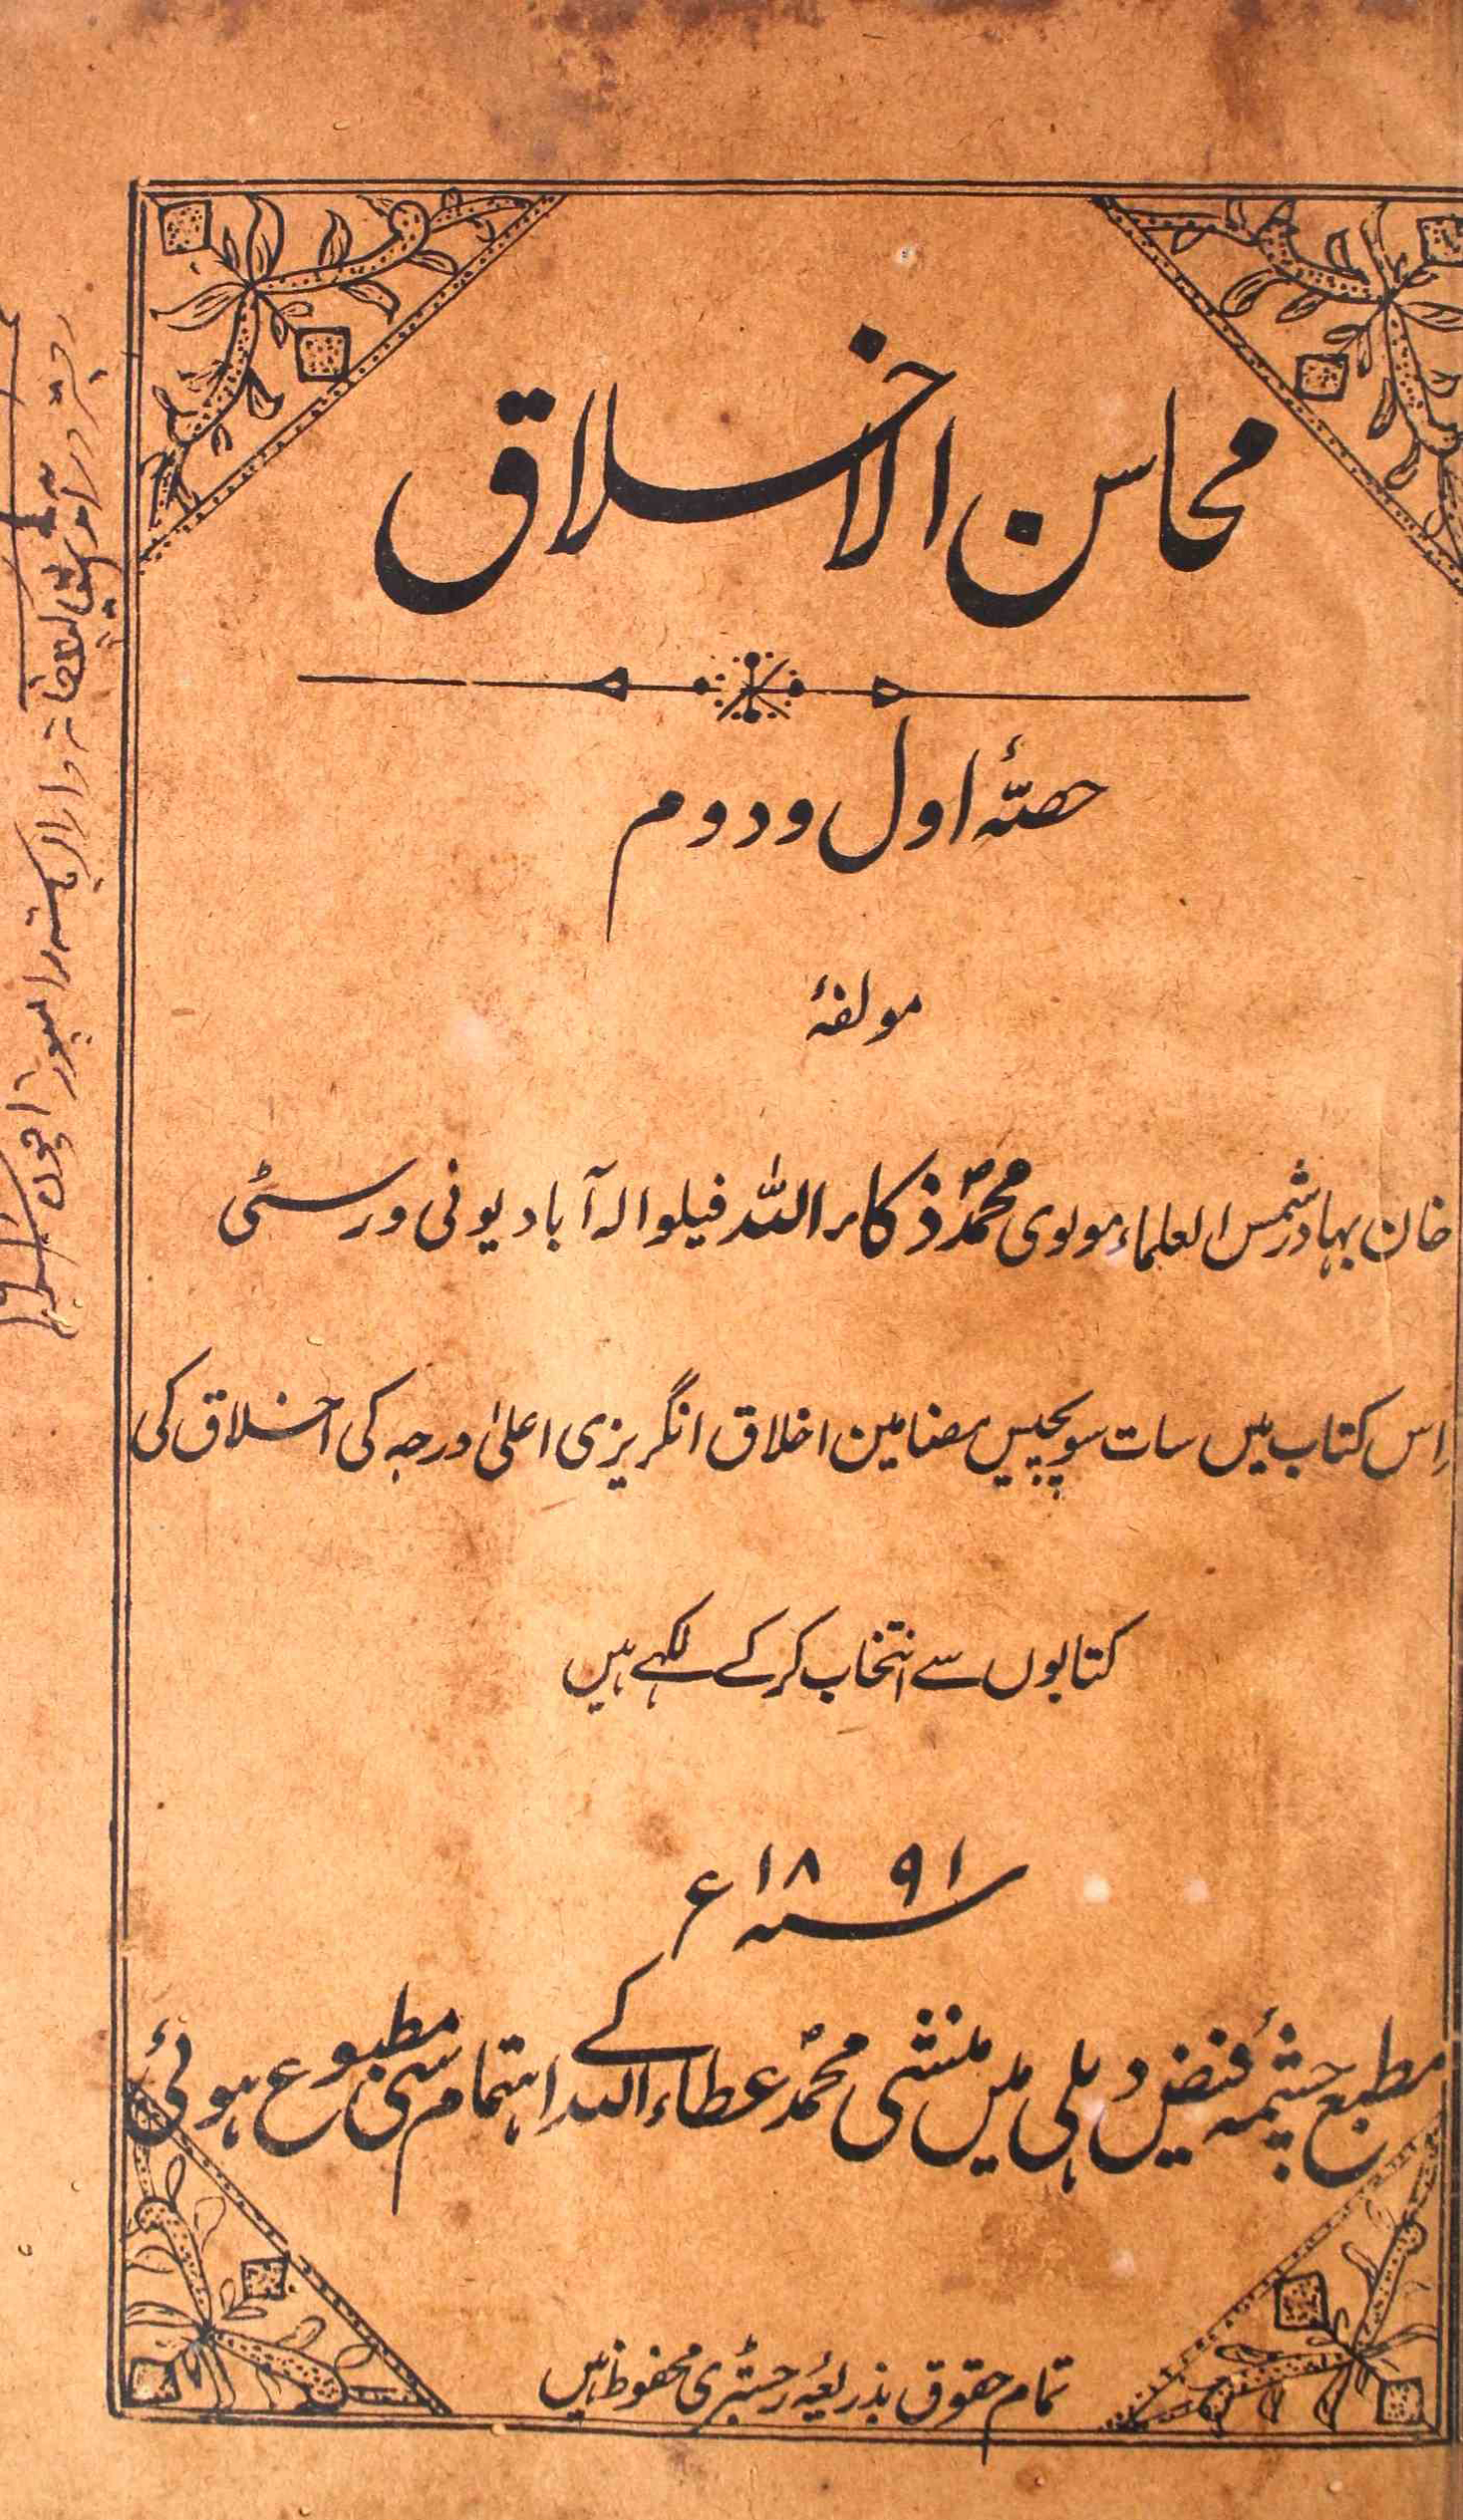 محاسن الاخلاق
حصۂ اول و دوم
مولفۂ
خان بہادر شمس العلماء مولوی محمدؐ ذکاء اللہ فیلو الہ آباد یونی ورسٹی
اِس کتاب میں سات سو پچیس مضامین اخلاق انگریزی اعلیٰ درجہ کی اخلاق کی
کتابوں سے انتخاب کر کے لکہے ہیں
سنہ ۱۸۹۱ء
مطبع چشمۂ فیض دہلی میں منشی محمدؐ عطاء اللہ کے اہتمام سی مطبوع ہوئی
تمام حقوق بذریعۂ رجسٹری محفوظ ہیں